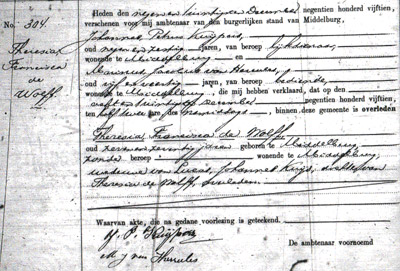 No. 304.
Theresia
Francisca
de
Wolff
Heden den negen en twintigsten December negentien honderd vijftien,
verschenen voor mij ambtenaar van den burgerlijken stand van Middelburg,
Johannes Petrus Kuijpers,
oud negen en zestig jaren, van beroep
wonende te Middelburg en
van Hercules,
oud vijf en veertig jaren, van beroep bediende,
wonende te Middelburg, die mij hebben verklaard, dat op den
acht en twintigsten December negentien honderd vijftien,
ten half twee ure des namiddags, binnen deze gemeente is overleden
Theresia Francisca de Wolff
oud zeven en zeventig jaren geboren te Middelburg,
zonder beroep wonende te Middelburg,
weduwe van Lucas Johannes dochter van
Theresia de Wolff, overleden.
Waarvan akte, die na gedane voorlezing is geteekend.
J. P. Kuijpers
M J van Hercules
De ambtenaar voornoemd